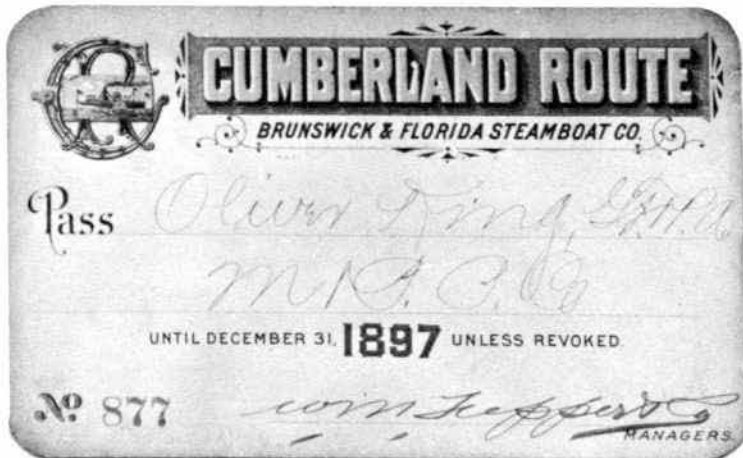 CUMBERLAND ROUTE
BRUNSWICK & FLORIDA STEAMBOAT CO.
Pass Oliver King,
Co
UNTIL DECEMBER 31, 1897 UNLESS REVOKED.
No 877 Wm Tupper & Co
MANAGERS.